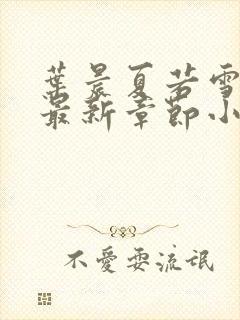 葉晨夏若雪
最新章節小
不愛耍流氓